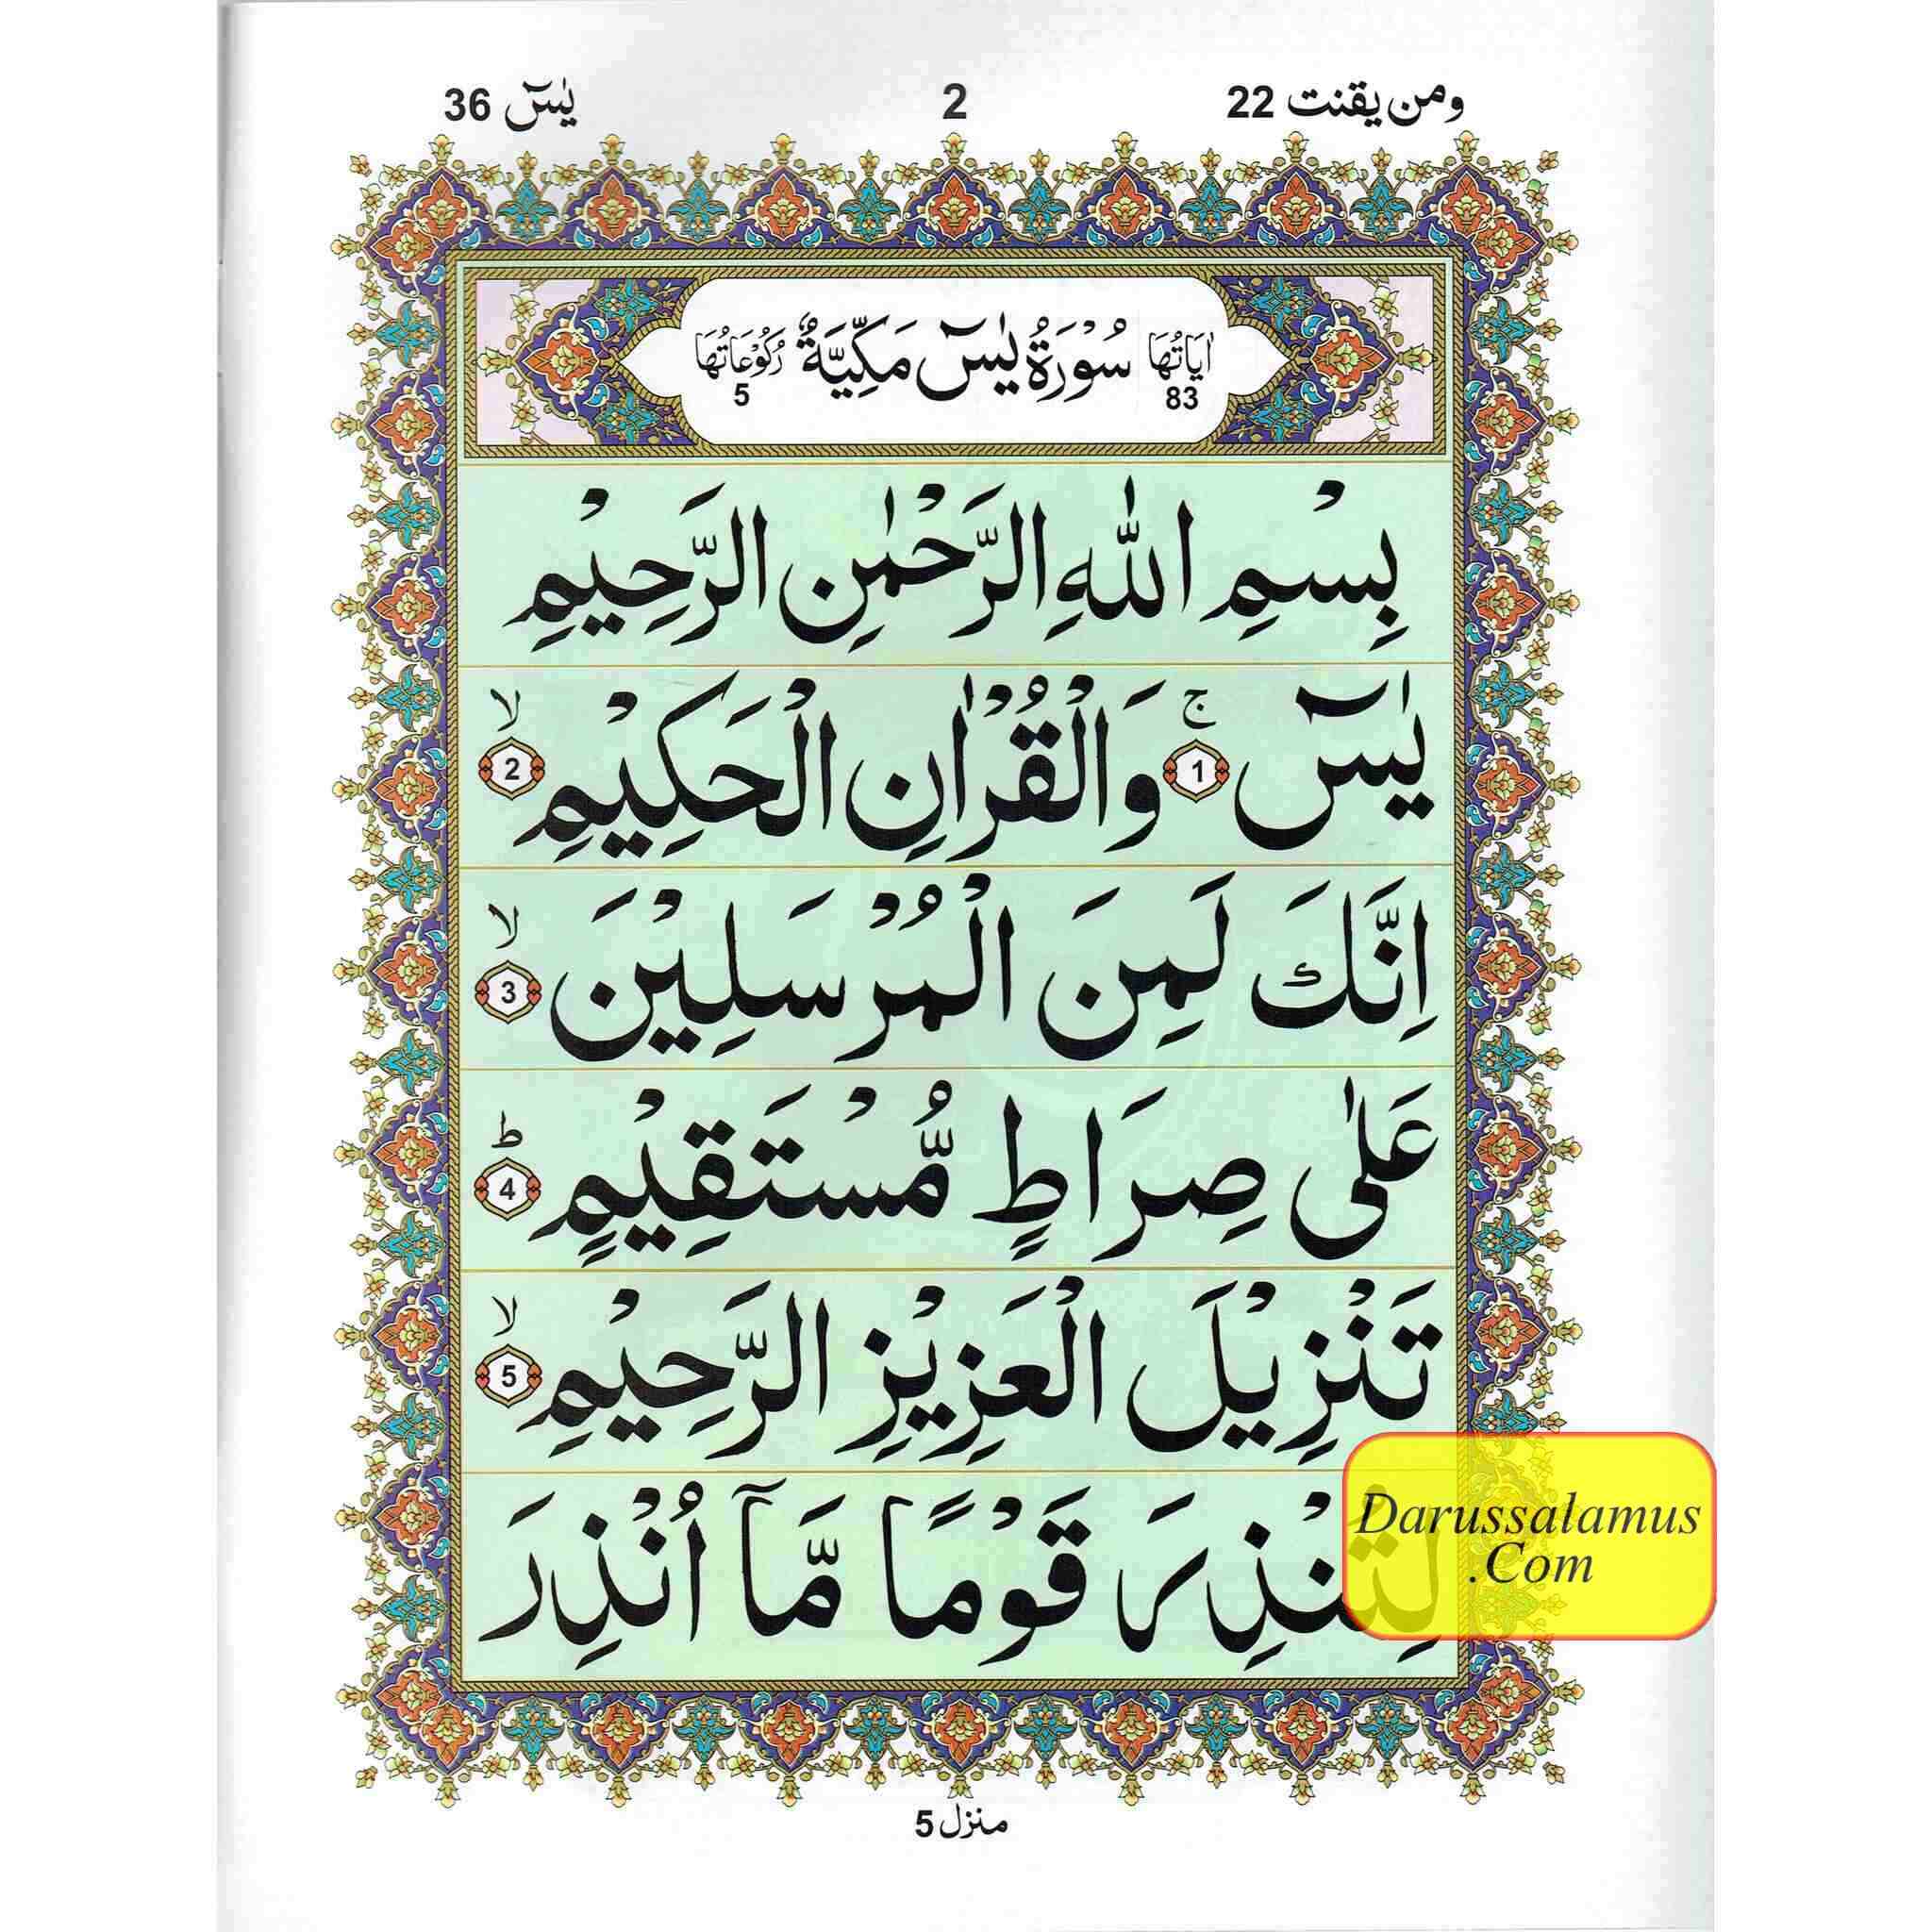 ومن يقنت 22 2 يٰسٓ 36
اٰيَاتُهَا 83 سُوْرَةُ يٰسٓ مَكِّيَّةٌ رُكُوْعَاتُهَا 5
بِسْمِ اللّٰهِ الرَّحْمٰنِ الرَّحِيْمِ
يٰسٓ ۚ 1 وَالْقُرْاٰنِ الْحَكِيْمِ ۙ 2
اِنَّكَ لَمِنَ الْمُرْسَلِيْنَ ۙ 3
عَلٰى صِرَاطٍ مُّسْتَقِيْمٍ ؕ 4
تَنْزِيْلَ الْعَزِيْزِ الرَّحِيْمِ ۙ 5
لِتُنْذِرَ قَوْمًا مَّآ اُنْذِرَ
Darussalamus
.Com
منزل 5